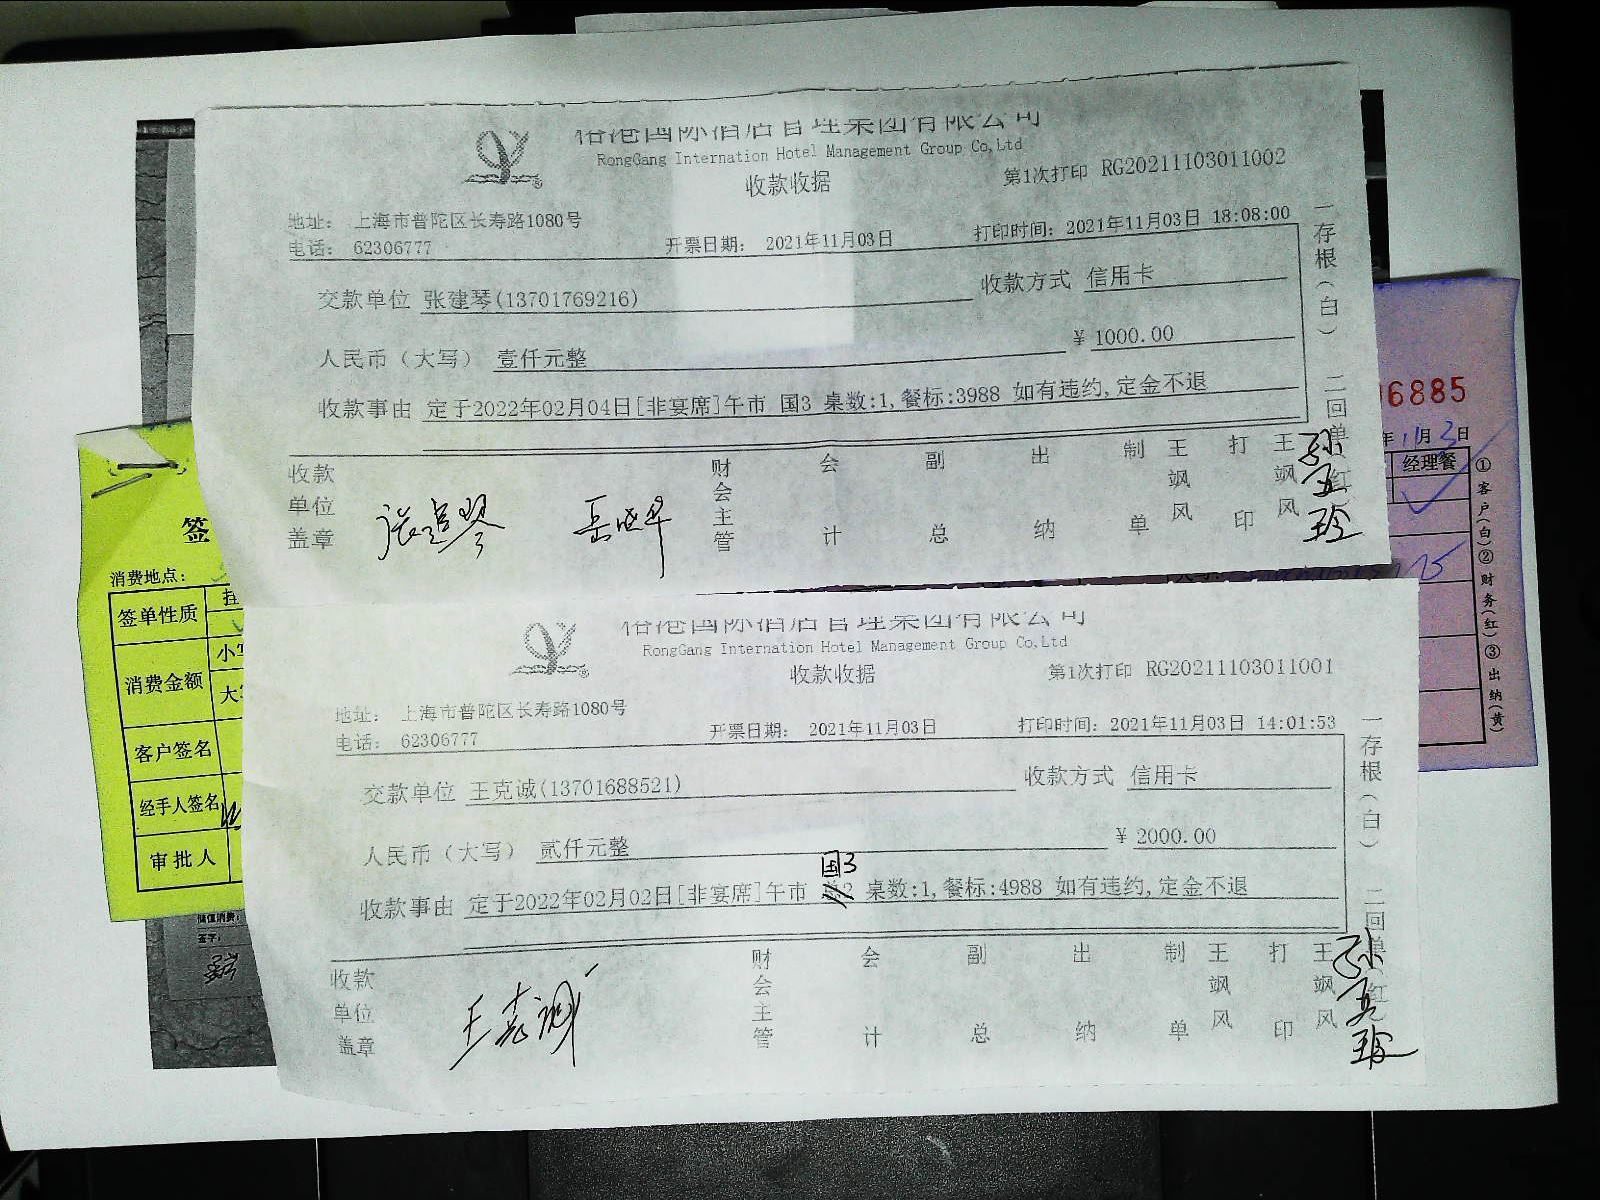 裕港国际酒店管理集团有限公司
RongGang Internation Hotel Management Group Co,Ltd
收款收据
第1次打印 RG20211103011002
地址： 上海市普陀区长寿路1080号
电话： 62306777
开票日期： 2021年11月03日
打印时间：2021年11月03日 18:08:00
交款单位 张建琴(13701769216)
收款方式 信用卡
人民币（大写） 壹仟元整
￥ 1000.00
收款事由 定于2022年02月04日[非宴席]午市 国3 桌数:1,餐标:3988 如有违约,定金不退
一存根（白） 二回单（红）
收款单位盖章
张建琴
财会主管
会计
副总
出纳
制单
王飒风
打印
王飒风
裕港国际酒店管理集团有限公司
RongGang Internation Hotel Management Group Co,Ltd
收款收据
第1次打印 RG20211103011001
地址： 上海市普陀区长寿路1080号
电话： 62306777
开票日期： 2021年11月03日
打印时间：2021年11月03日 14:01:53
交款单位 王克诚(13701688521)
收款方式 信用卡
人民币（大写） 贰仟元整
￥ 2000.00
国3
收款事由 定于2022年02月02日[非宴席]午市 桌数:1,餐标:4988 如有违约,定金不退
一存根（白） 二回单（红）
收款单位盖章
王克诚
财会主管
会计
副总
出纳
制单
王飒风
打印
王飒风
签
消费地点：
签单性质
挂
消费金额
小写
大写
客户签名
经手人签名
审批人
储值消费：
签字：
6885
年11月3日
经理餐
①客户(白)②财务(红)③出纳(黄)